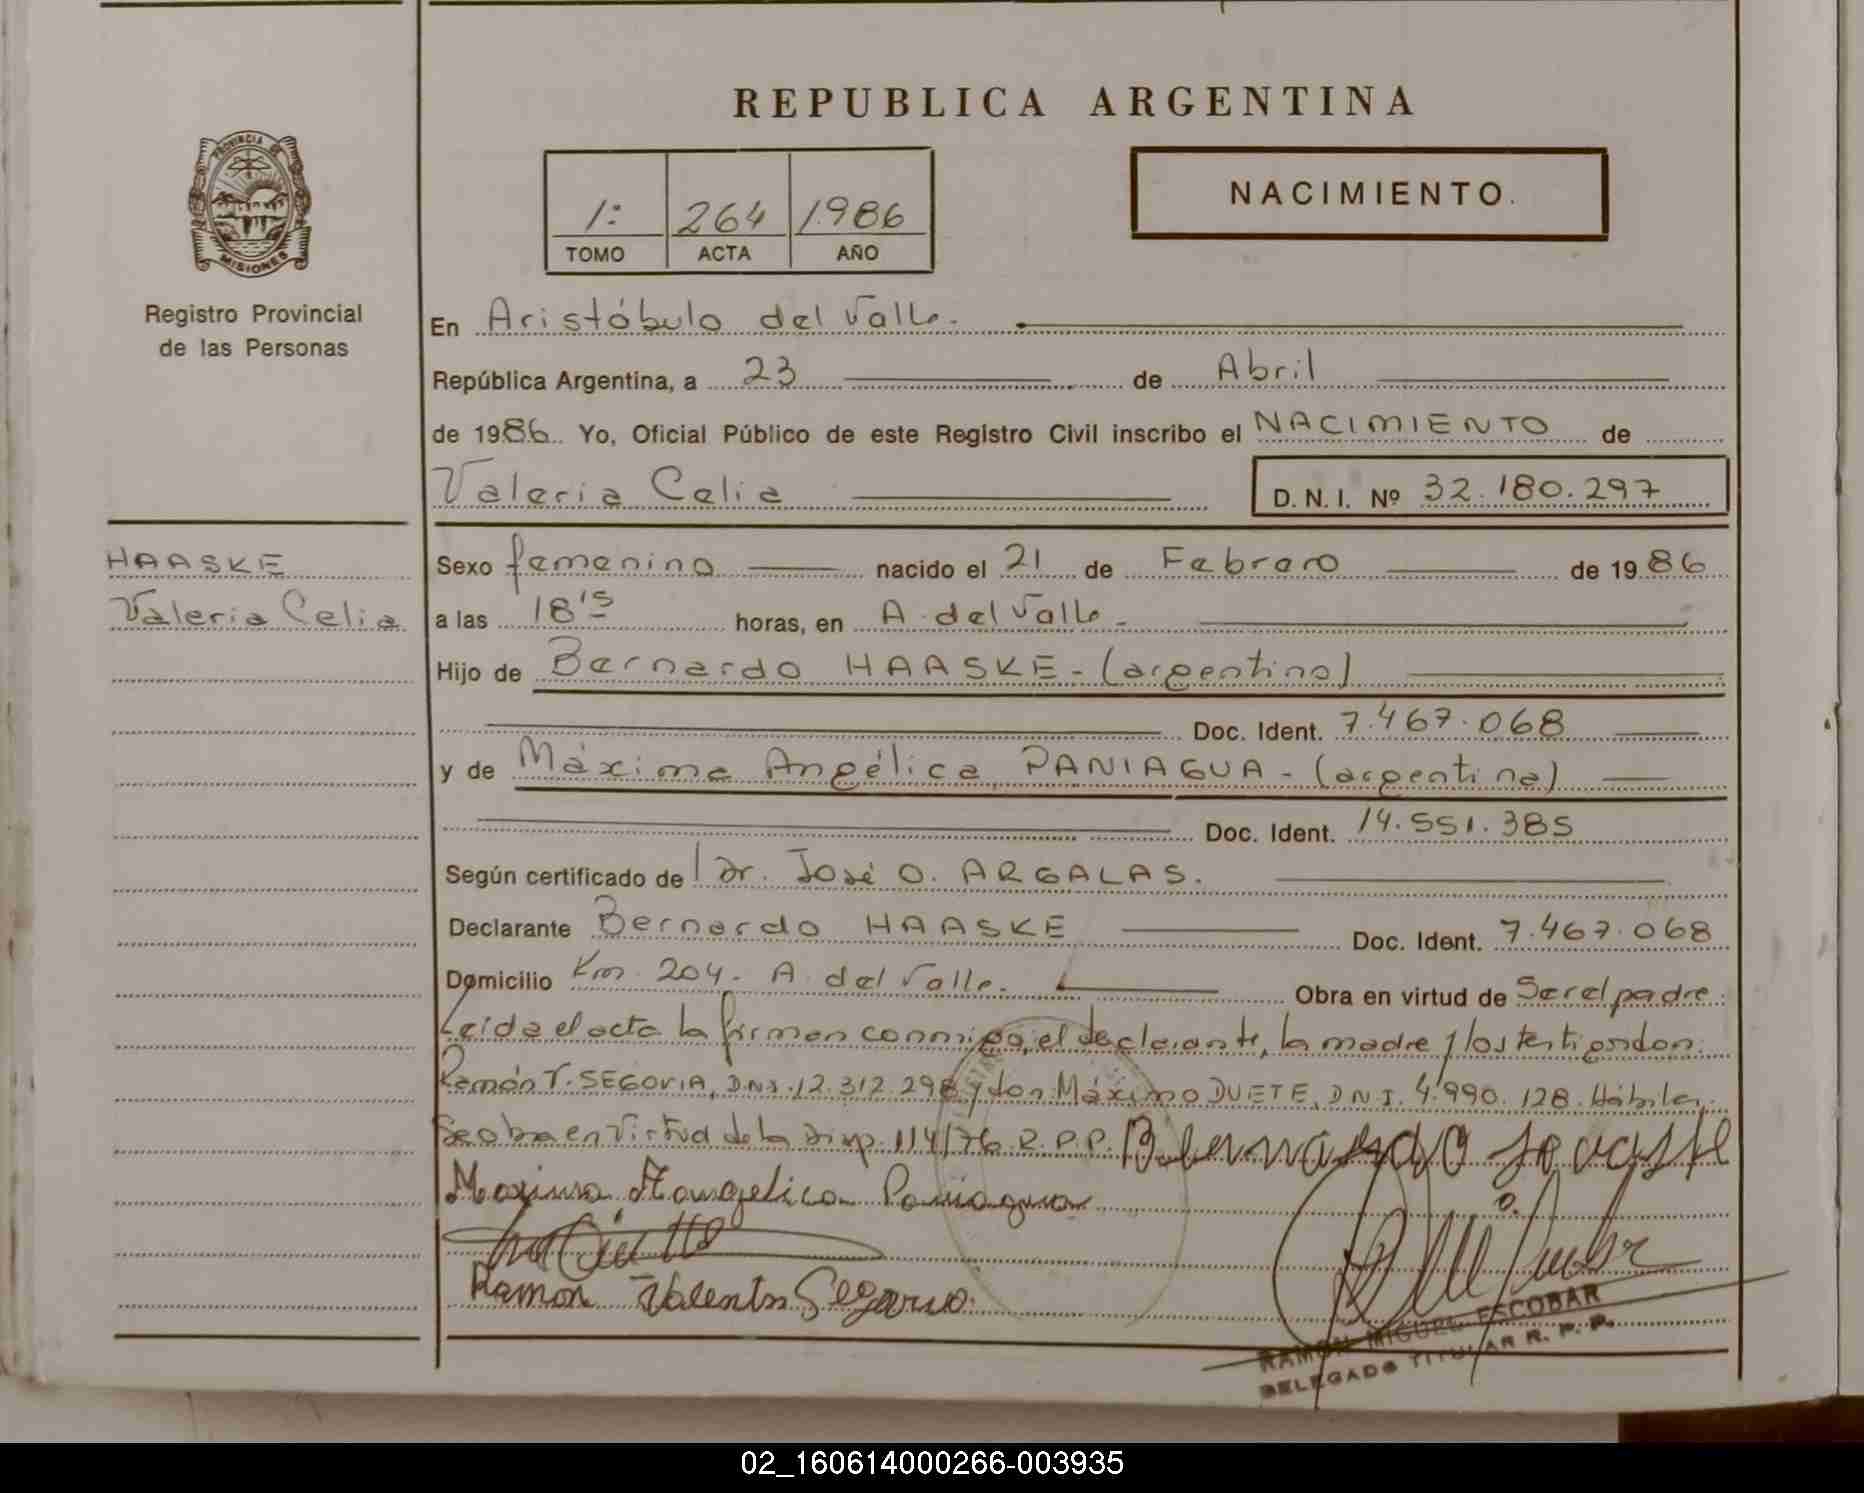 REPUBLICA ARGENTINA
PROVINCIA DE
MISIONES
Registro Provincial
de las Personas
1: 264 1986
TOMO ACTA AÑO
NACIMIENTO.
En Aristóbulo del Valle.
República Argentina, a 23 de Abril
de 1986. Yo, Oficial Público de este Registro Civil inscribo el NACIMIENTO de
Valeria Celia
D. N. I. Nº 32.180.297
HAASKE
Valeria Celia
Sexo femenino nacido el 21 de Febrero de 1986
a las 18'15 horas, en A. del Valle.
Hijo de Bernardo HAASKE - (argentino)
Doc. Ident. 7.467.068
y de Máxima Angélica PANIAGUA - (argentina)
Doc. Ident. 14.551.385
Según certificado de Dr. José O. ARGALAS.
Declarante Bernardo HAASKE Doc. Ident. 7.467.068
Domicilio Km. 204. A. del Valle. Obra en virtud de Ser el padre.
Leida el acta la firman conmigo, el declarante, la madre y los testigos don
Ramón V. SEGOVIA, D.N.I. 12.312.298 y don Máximo DUETE, D.N.I. 4.990.128. Hábiles.
Se obra en virtud de la Disp. 114/76 R.P.P. Bernardo
Maxima Angelica Paniagua
Ramon Valentin Segovia
RAMON MIGUEL ESCOBAR
DELEGADO TITULAR R. P. P.
02_160614000266-003935